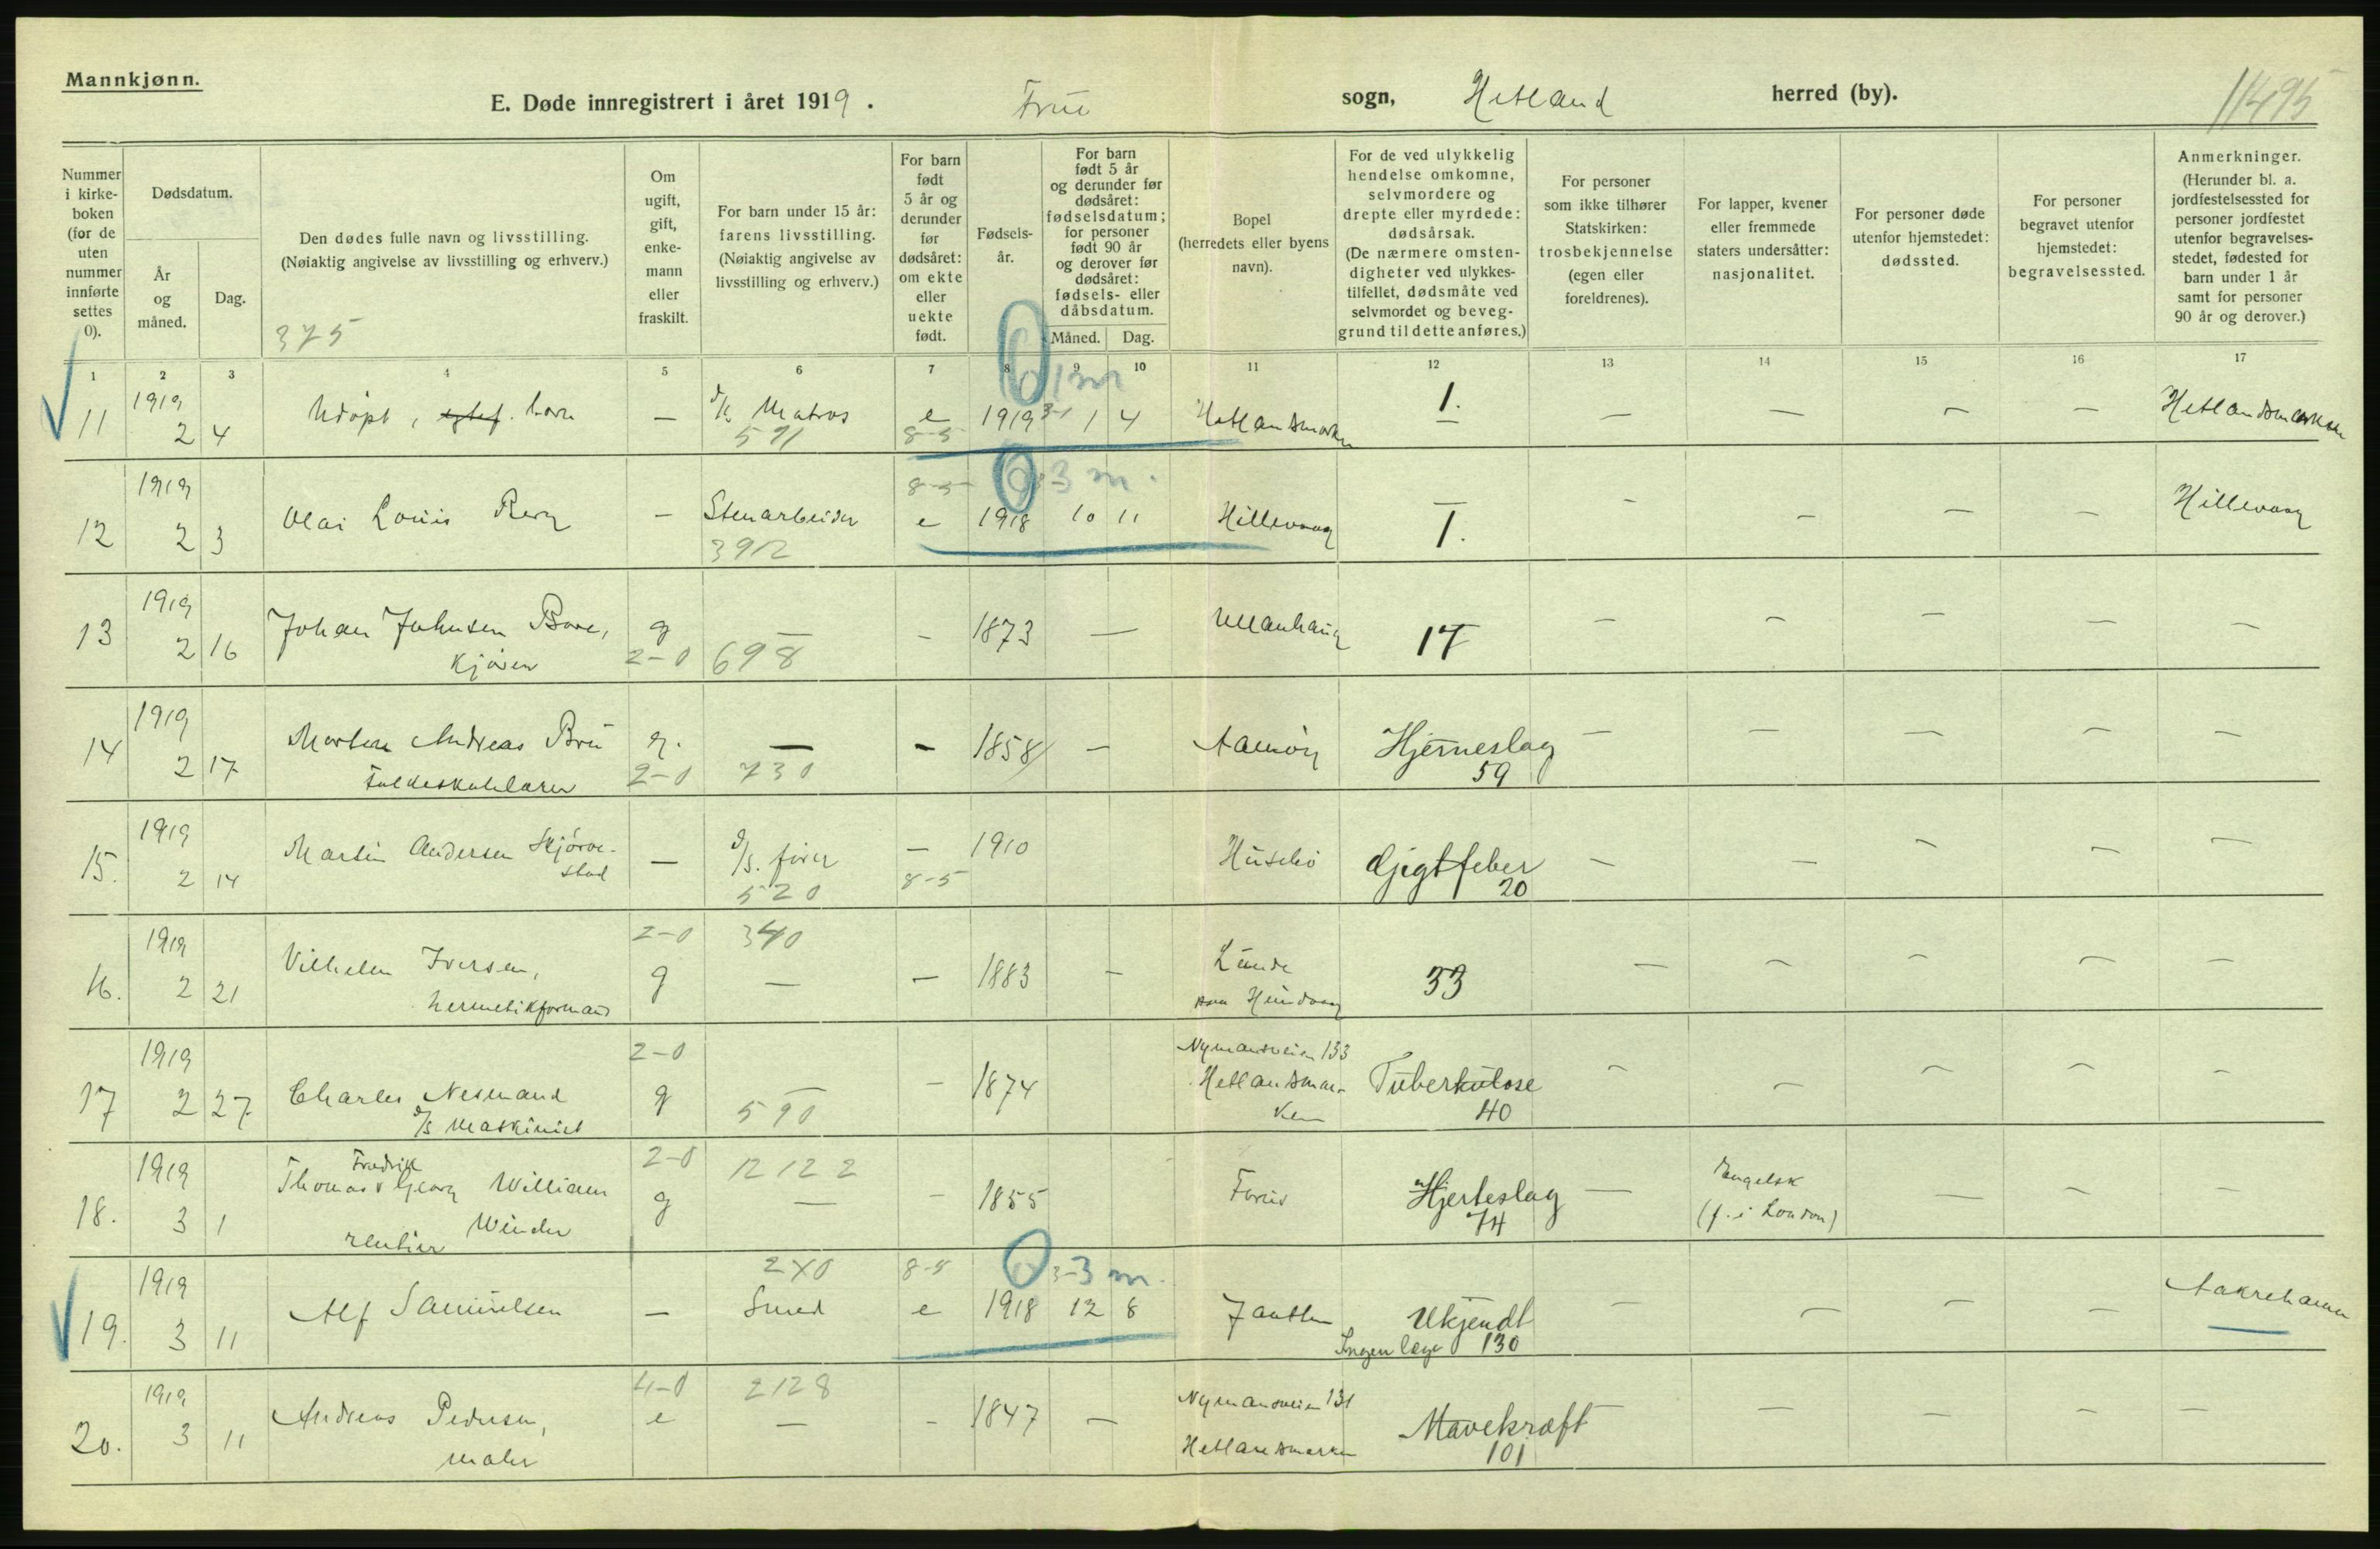 Mannkjønn.
E. Døde innregistrert i året 1919. Frue sogn, Hetland herred (by).
11495
Nummer i kirkeboken (for de uten nummer innførte settes 0).
Dødsdatum.
År og måned.
Dag.
Den dødes fulle navn og livsstilling.
(Nøiaktig angivelse av livsstilling og erhverv.)
375
Om ugift, gift, enkemann eller fraskilt.
For barn under 15 år: farens livsstilling. (Nøiaktig angivelse av livsstilling og erhverv.)
For barn født 5 år og derunder før dødsåret: om ekte eller uekte født.
Fødselsår.
For barn født 5 år og derunder før dødsåret: fødselsdatum; for personer født 90 år og derover før dødsåret: fødsels- eller dåbsdatum.
Måned. Dag.
Bopel (herredets eller byens navn).
For de ved ulykkelig hendelse omkomne, selvmordere og drepte eller myrdede: dødsårsak. (De nærmere omstendigheter ved ulykkestilfellet, dødsmåte ved selvmordet og beveggrund til dette anføres.)
For personer som ikke tilhører Statskirken: trosbekjennelse (egen eller foreldrenes).
For lapper, kvener eller fremmede staters undersåtter: nasjonalitet.
For personer døde utenfor hjemstedet: dødssted.
For personer begravet utenfor hjemstedet: begravelsessted.
Anmerkninger. (Herunder bl. a. jordfestelsessted for personer jordfestet utenfor begravelsesstedet, fødested for barn under 1 år samt for personer 90 år og derover.)
1 2 3 4 5 6 7 8 9 10 11 12 13 14 15 16 17
0 1 m
11 1919 2 4 Udöpt, egtef. barn — d/k Matros 591 e 8-5 1919 3-1 1 4 Hetlandsmarken 1. — — — — Hetlandsmarken
0 3 m.
12 1919 2 3 Olai Louis Berg — Stenarbeider 392 8-5 e 1918 10 11 Hillevaag 1. — — — — Hillevaag
13 1919 2 16 Johan Johnsen Bore, kjörer g 2-0 — 698 — 1873 — Ullanhaug 17 — — — — —
14 1919 2 17 Morten Andreas Bru folkeskolelærer g. 2-0 — 730 — 1858 — Aamöy Hjerneslag 59 — — — — —
15. 1919 2 14 Martin Andersen Skjörvestad — d/s. förer 520 — 8-5 1910 Husebö Gjigtfeber 20 — — — — —
16. 1919 2 21 Vilhelm Iversen, hermetikformand 2-0 g 340 — — 1883 — Lunde paa Hundvaag 33 — — — — —
17 1919 2 27 Charles Nesmand d/s maskinist 2-0 g — 590 — 1874 Nymansveien 133 Hetlandsmarken Tuberkulose 40 — — — — —
18. 1919 3 1 Thomas Fredrik Georg William Winder rentier 2-0 g 12122 — — 1855 Forus Hjerteslag 74 — Engelsk (f. i London) — — —
0 3-3 m.
19. 1919 3 11 Alf Samuelsen — 240 Smed 8-5 e 1918 12 8 Jaatten Ukjendt Ingen læge 130 — — — — Aakrehamn
20. 1919 3 11 Andreas Pedersen, maler 4-0 e 2128 — — 1847 — Nymansveien 131 Hetlandsmarken Mavekræft 101 — — — — —